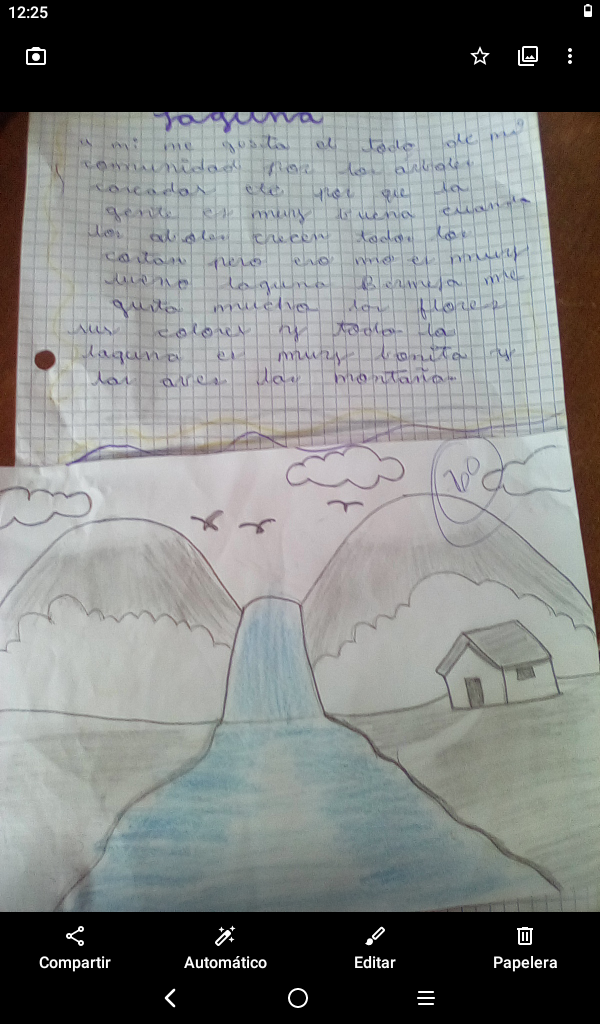 12:25
laguna
a mi me gusta el todo de mi
comunidad por los árboles
cascadas ele por que la
gente es muy buena cuando
los aboles crecen todos los
cortan pero eso no es muy
bueno laguna Bermeja me
gusta mucho las flores
sus colores y todo la
laguna es muy bonita y
las aves las montañas
Compartir
Automático
Editar
Papelera